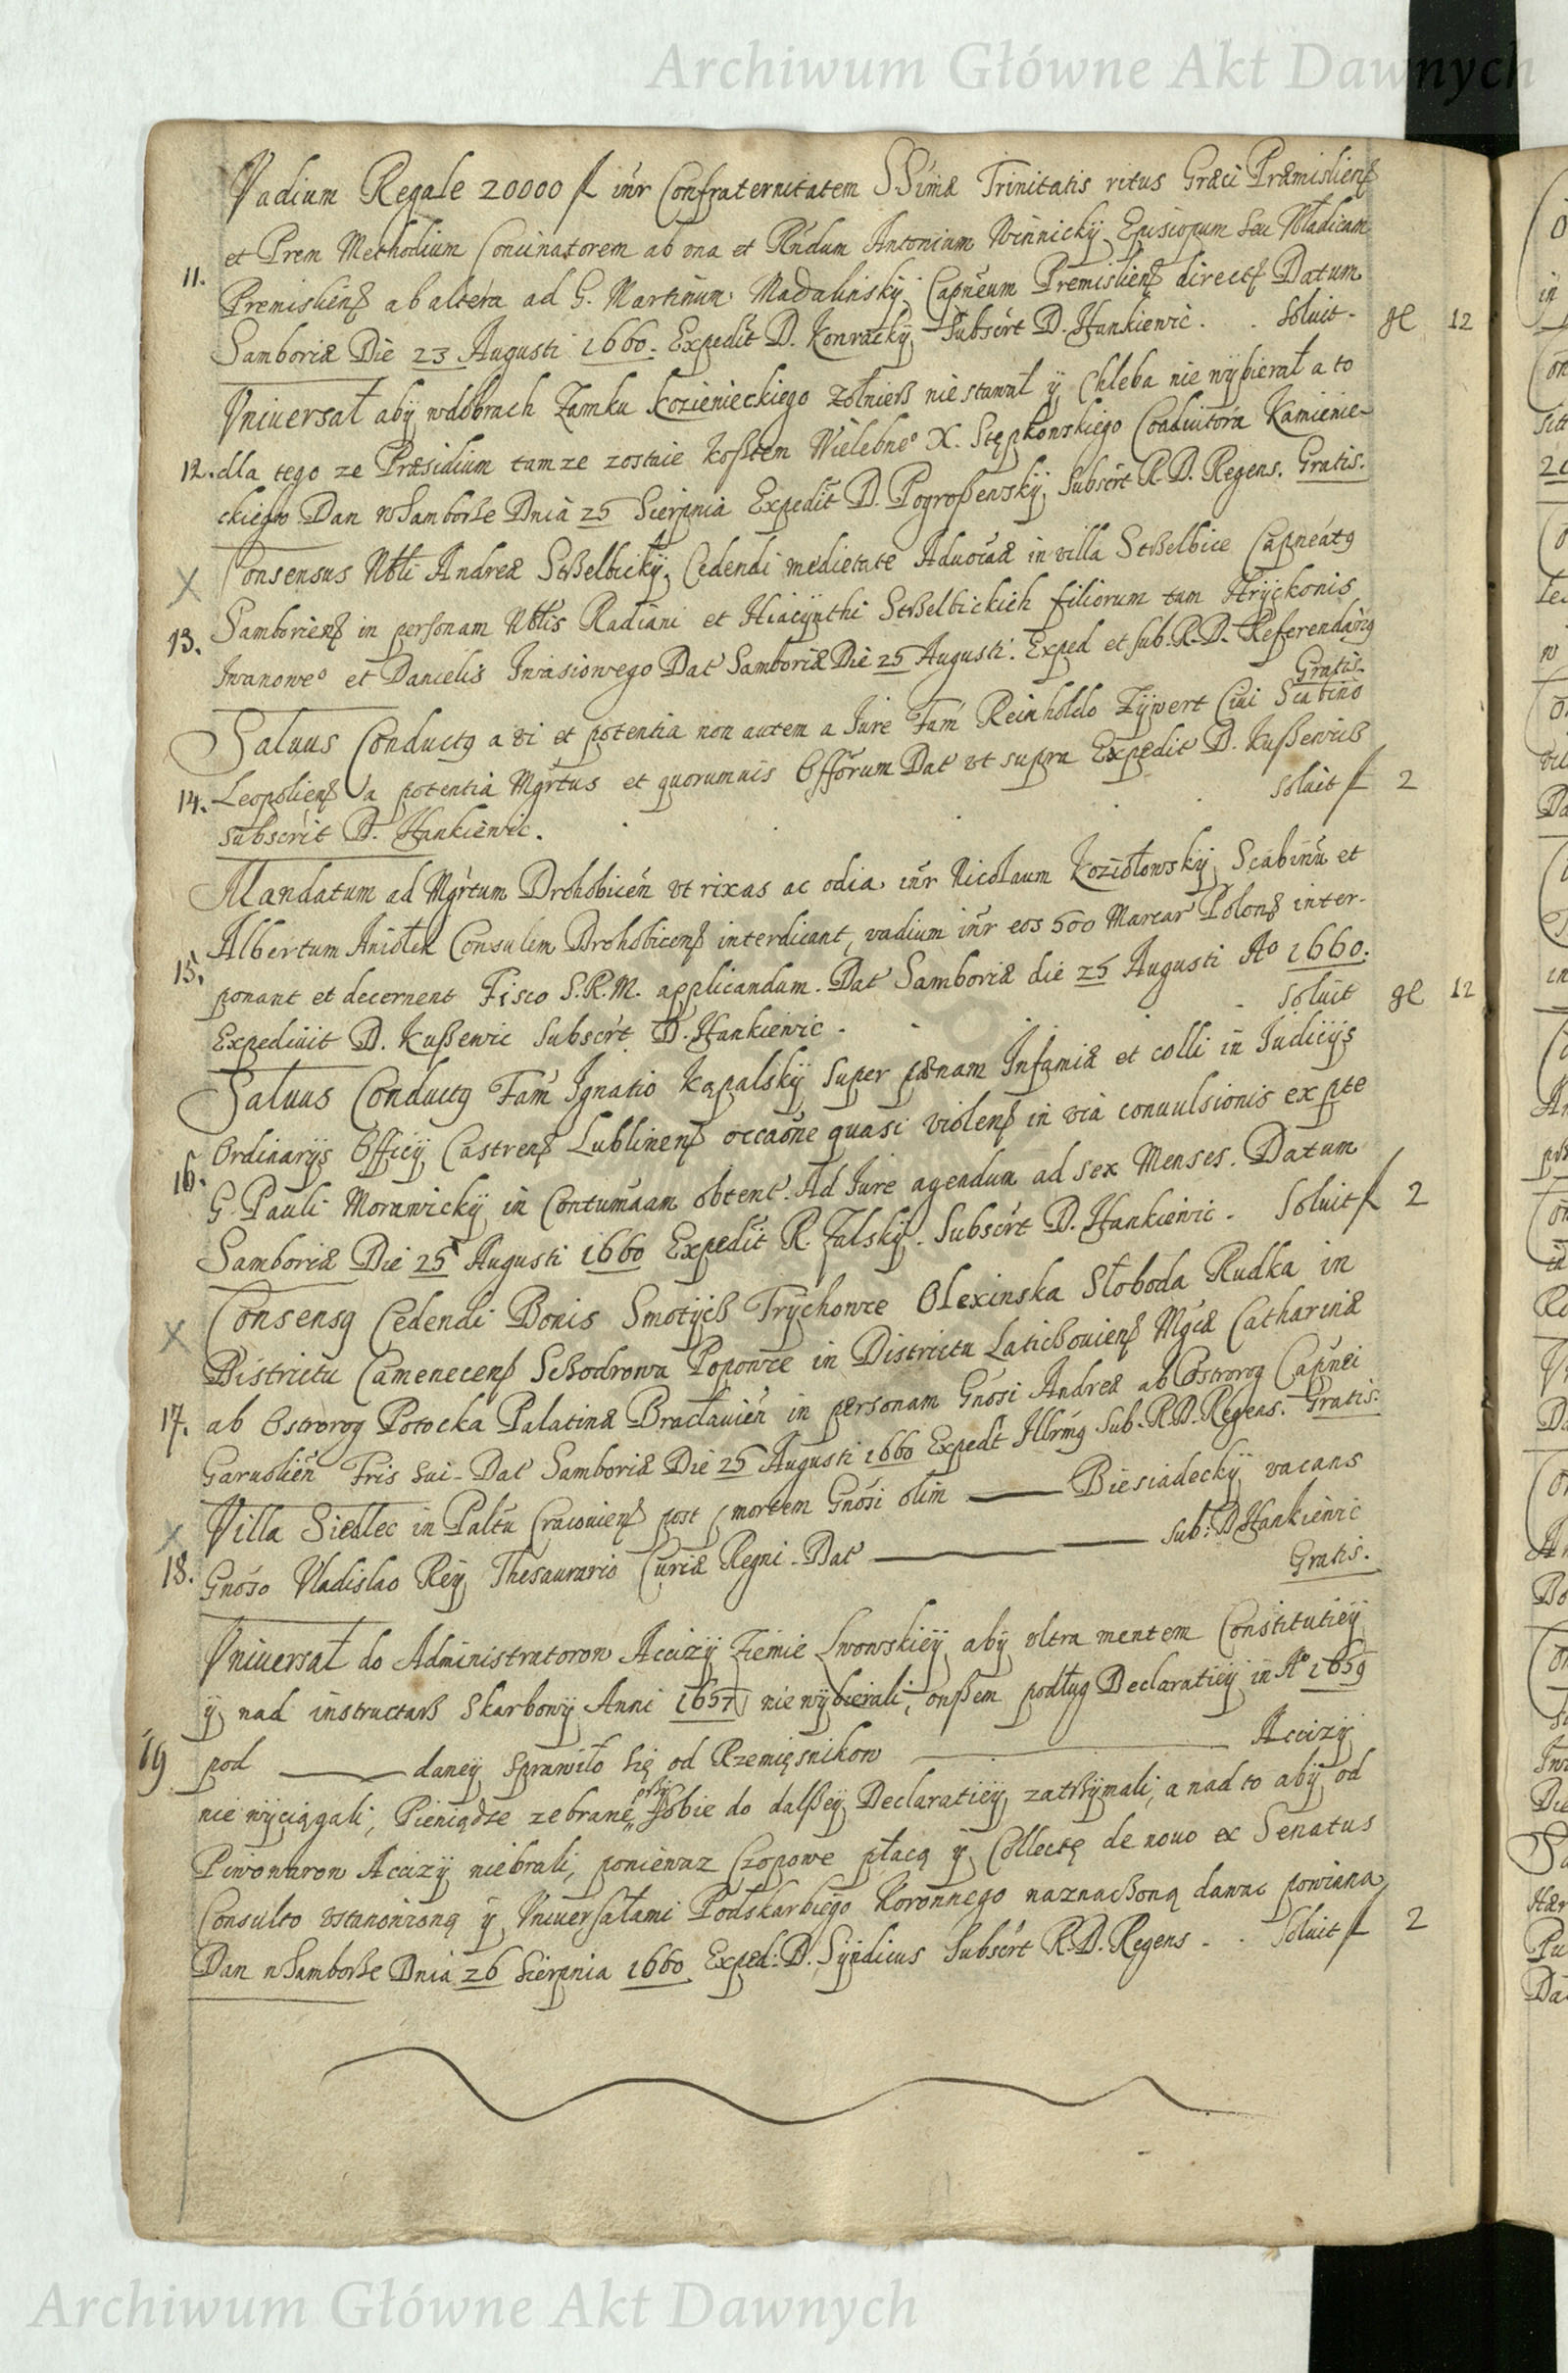 Archiwum Główne Akt Dawnych
Vadium Regale 20000 fl inr Confraternitatem SSimæ Trinitatis ritus Græci Præmislienß
et Prem Methodium Concinatorem ab vna et Rndum Antonium Winnicky Episcopum seu Władicam
11. Premislienß ab altera ad G. Martinum Madalinsky Capneum Premislienß direct Datum
Samboriæ Die 23 Augusti 1660. Expedit D. Konracky Subscrt D. Hankiewic. Soluit. gl 12
Vniuersał aby wdobrach Zamku Kozienieckiego żołnierß nie stawał ÿ Chleba nie wybierał a to
12. dla tego ze Præsidium tamze zostaie kosztem Wielebneº X. Stępkowskiego Coaduitora Kamienie-
ckiego Dan wSamborze Dnia 25 Sierpnia Expedit D. Pogroßewsky Subscrt R.D. Regens. Gratis.
Consensus Nbli Andreæ Strzelbicky Cedendi medietate Aduocaæ in villa Strzelbice Capneatq
X
13. Samborienß in personam Nblis Radiani et Hiacynthi Strzelbickich filiorum tam Hryckonis
Iwanoweº et Danielis Iwasiowego Dat Samboriæ Die 25 Augusti. Exped et sub. R.D. Referendarq
Gratis.
Saluus Conductq a vi et potentia non autem a Iure Fam Reinholdo Zywert Ciui Scabino
14. Leopolienß a potentia Mgrtus et quorumuis Offorum Dat vt supra Expedit D. Kußewicß
subscrit D. Hankiewic. Soluit fl 2
Mandatum ad Mgrtum Drohobicen vt rixas ac odia inr Nicolaum Koziołowsky Scabinu et
Albertum Aniołek Consulem Drohobicenß interdicant, vadium inr eos 500 Marcar Polonß inter-
15. ponant et decernent Fisco S.R.M. applicandum. Dat Samboriæ die 25 Augusti Aº 1660.
Expediuit D. Kußewic Subscrt D. Hankiewic. Soluit gl 12
Saluus Conductq Fam Ignatio Kapalsky super pænam Infamiæ et colli in Iudicijs
Ordinarijs Officÿ Castrenß Lublinenß occaone quasi violenß in via conuulsionis ex pte
16. G. Pauli Morawicky in Contumaam obtent. Ad Iure agendum ad sex Menses. Datum
Samboriæ Die 25 Augusti 1660 Expedit R. Zalsky. Subscrt D. Hankiewic. Soluit fl 2
Consensq Cedendi Bonis Smotÿcß Trychowce Olexinska Słoboda Rudka in
X
Districtu Camenecenß Schodrowa Popowce in Districtu Latichouienß Mgcæ Catharinæ
17. ab Ostrorog Potocka Palatinæ Bracłauien in personam Gnosi Andreæ ab Ostrorog Capnei
Garuolien Fris sui. Dat Samboriæ Die 25 Augusti 1660 Expedt Illrmq Sub. R.D. Regens. Gratis.
X Villa Siedlec in Paltu Cracouienß post mortem Gnosi olim Biesiadecky vacans
18. Gnoso Vladislao Rey Thesaurario Curiæ Regni. Dat sub: D Hankiewic
Gratis.
Vniuersał do Administratorow Accizÿ Ziemie Lwowskieÿ aby vltra mentem Constitutieÿ
ÿ nad instructarß skarbowÿ Anni 1657 nie wybierali, owßem podług Declaratieÿ in Aº 1659
19 pod daneÿ sprawiło się od Rzemięsnikow Accizÿ
nie wyciągali, Pieniądze zebrane przy sobie do dalßeÿ Declaratieÿ zatrzymali, a nad to aby od
Piwowarow Accizÿ niebrali, poniewaz Czopowe płacą ÿ Collectę de nouo ex Senatus
Consulto vstanowioną ÿ Vniuersałami Podskarbiego Koronnego naznaczoną dawac powinna
Dan wSamborze Dnia 26 Sierpnia 1660 Exped: D. Syndicus Subscrt R.D. Regens. Soluit fl 2
Archiwum Główne Akt Dawnych